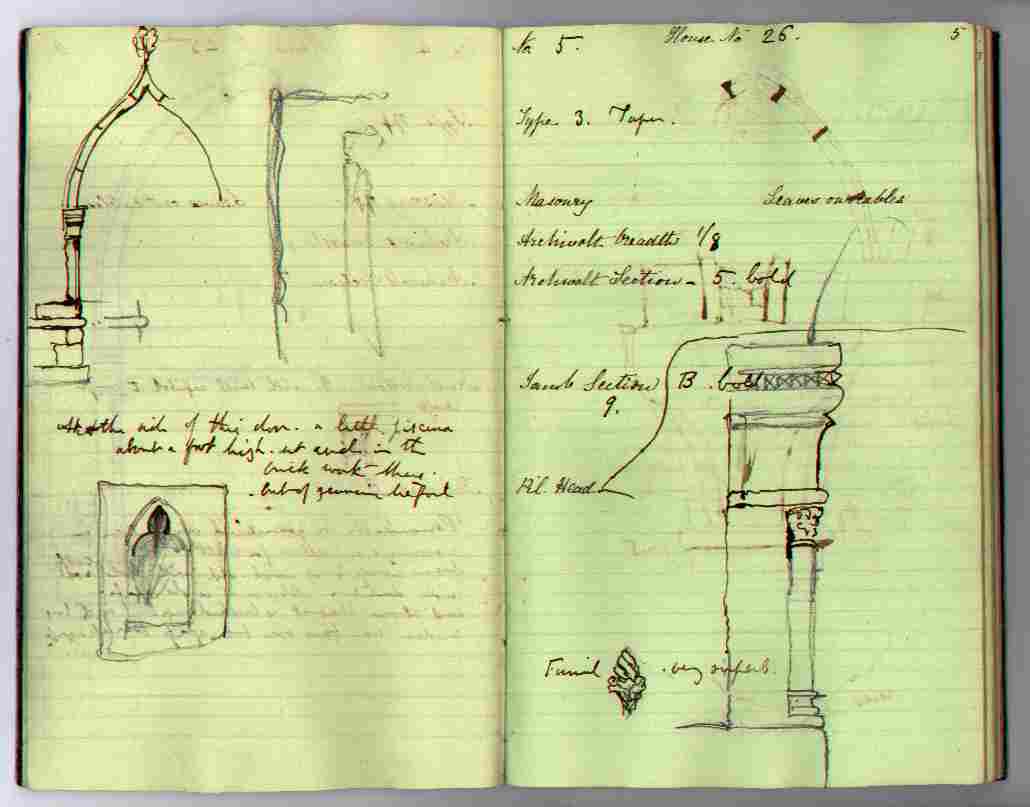 At the side of this door. a little piscina
about a foot high. set aside in the
brick work there.
but of genuine
No 5. House No 26. 5
Type 3. Taper.
Masonry Leaves on Cables
Archivolt breadth 1/8
Archivolt Section - 5. bold
Jamb Section B. bold
9.
Pil. Head
Finial very superb.